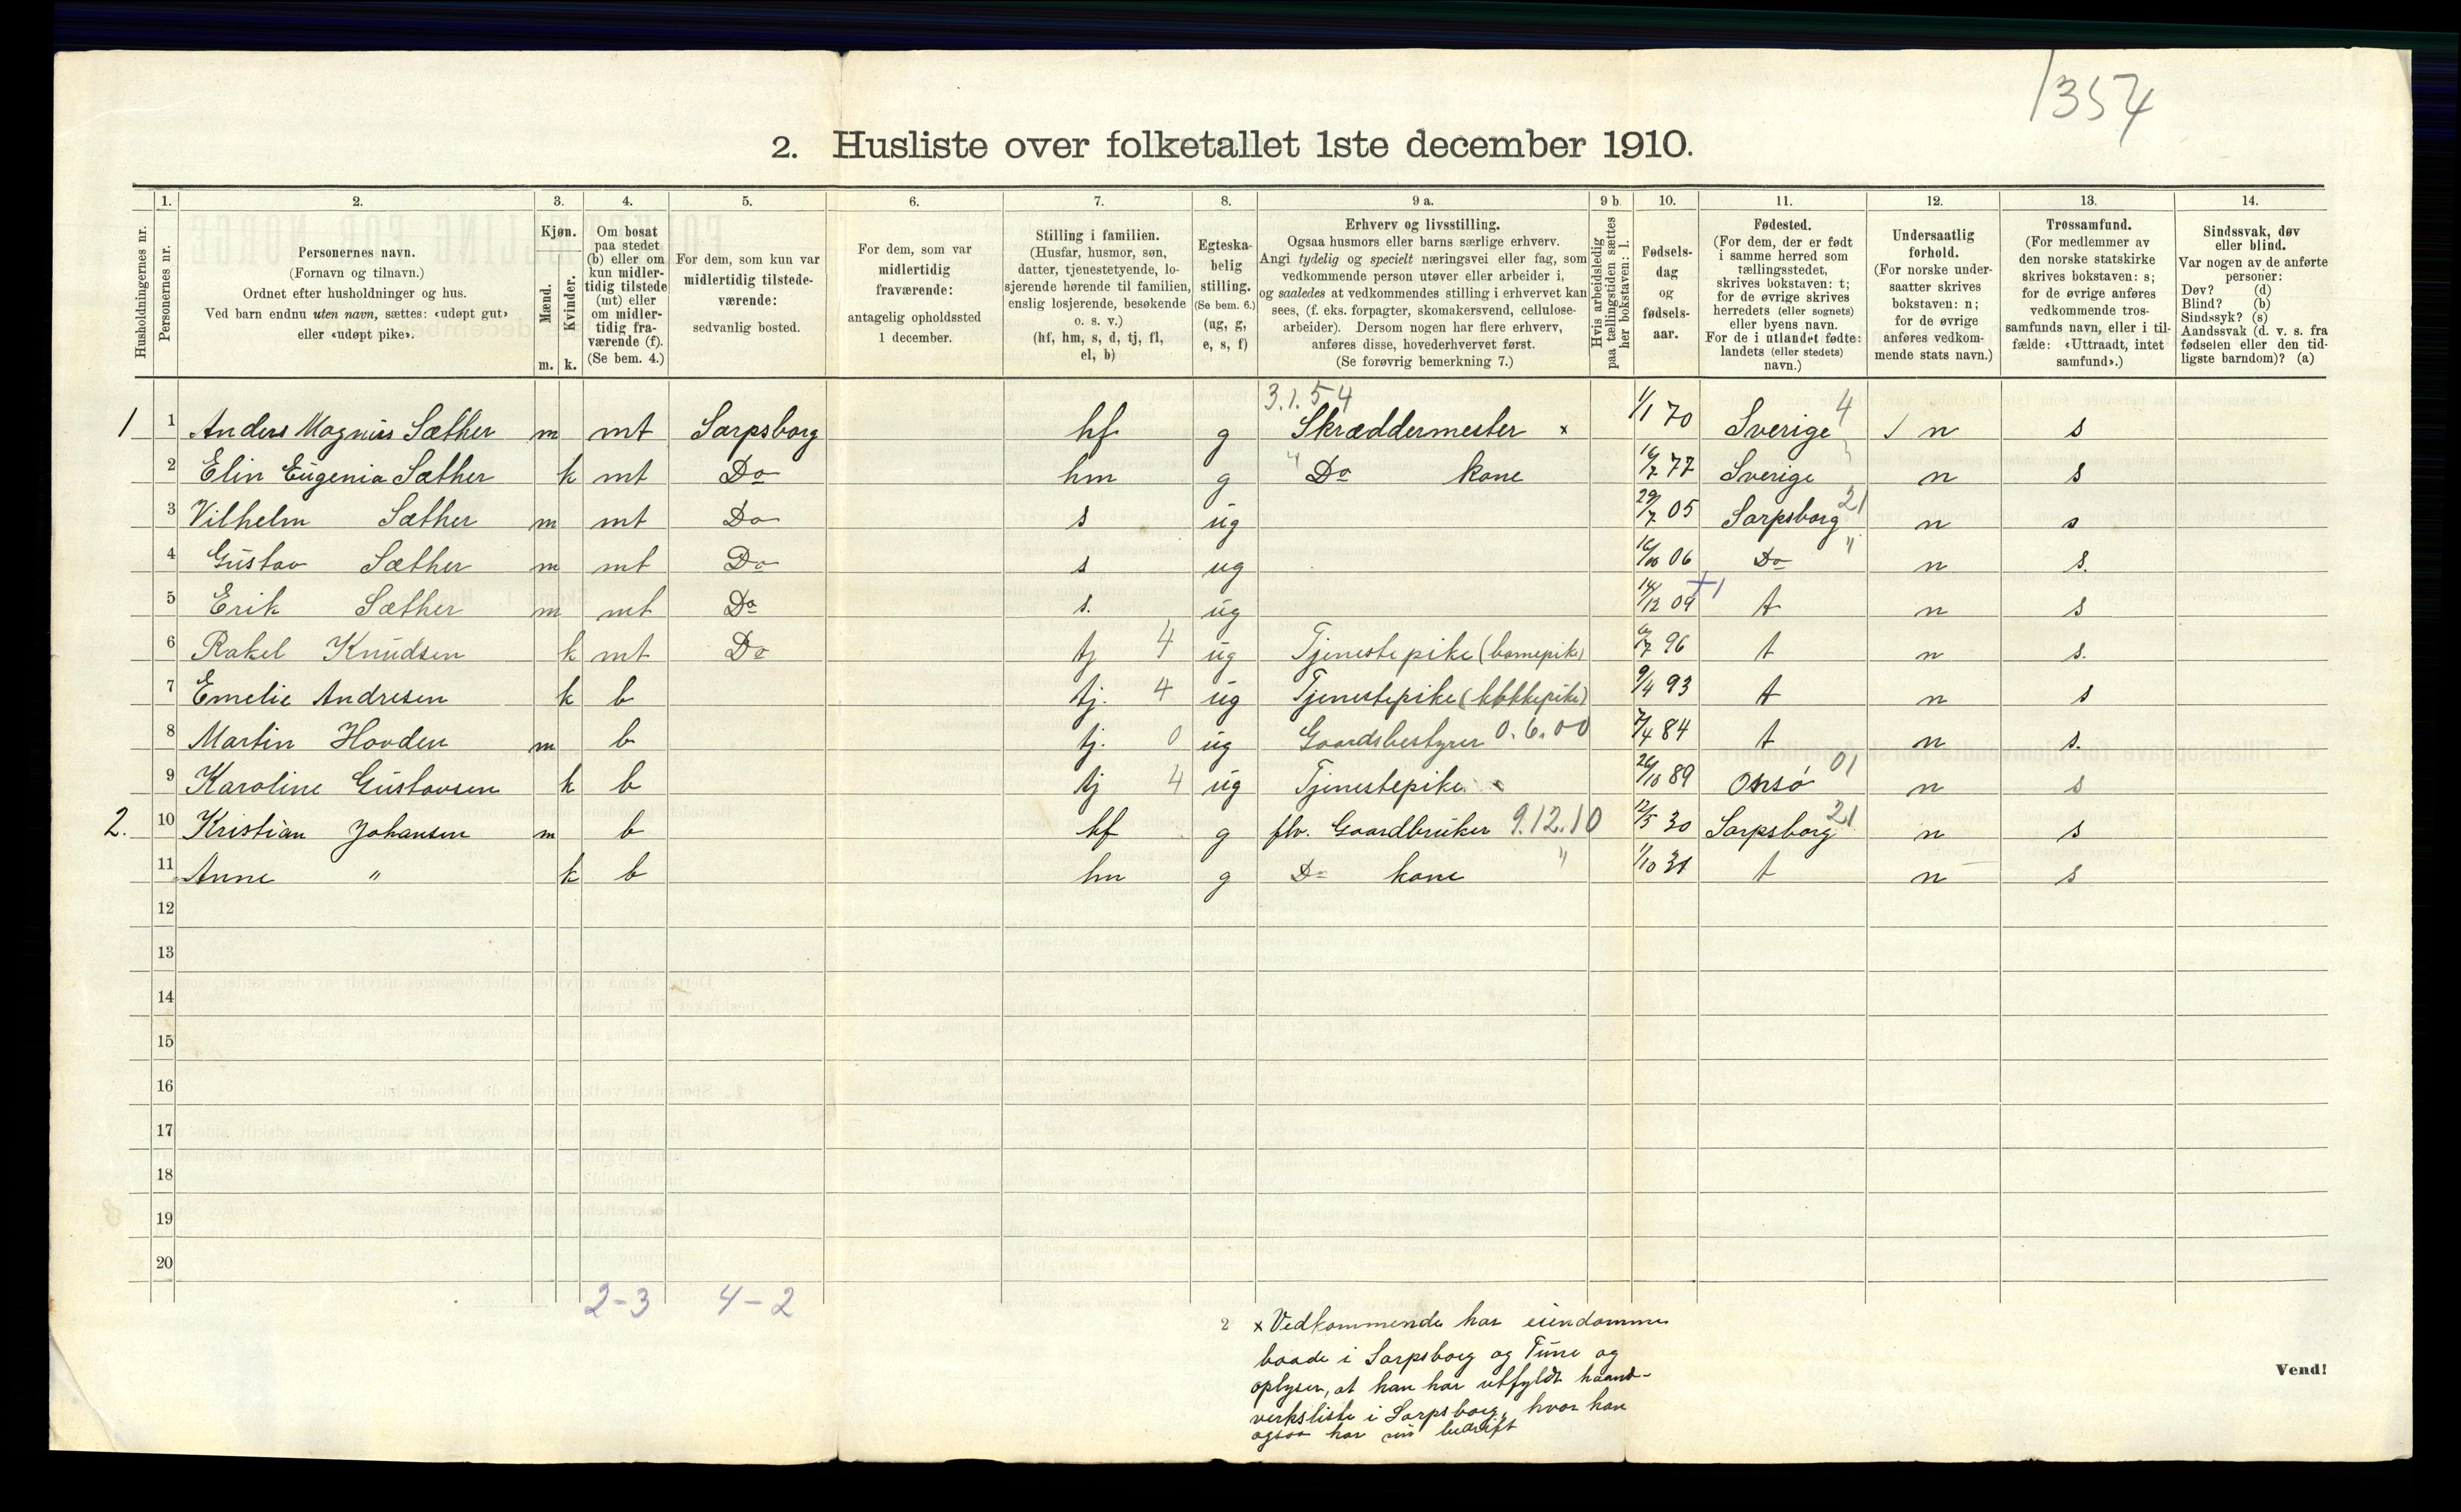 1357
2. Husliste over folketallet 1ste december 1910.
Husholdningernes nr.
1. Personernes nr.
2. Personernes navn. (Fornavn og tilnavn.) Ordnet efter husholdninger og hus. Ved barn endnu uten navn, sættes: «udøpt gut» eller «udøpt pike».
3. Kjøn. Mænd. m. Kvinder. k.
4. Om bosat paa stedet (b) eller om kun midlertidig tilstede (mt) eller om midlertidig fraværende (f). (Se bem. 4.)
5. For dem, som kun var midlertidig tilstedeværende: sedvanlig bosted.
6. For dem, som var midlertidig fraværende: antagelig opholdssted 1 december.
7. Stilling i familien. (Husfar, husmor, søn, datter, tjenestetyende, losjerende hørende til familien, enslig losjerende, besøkende o. s. v.) (hf, hm, s, d, tj, fl, el, b)
8. Egteskabelig stilling. (Se bem. 6.) (ug, g, e, s, f)
9 a. Erhverv og livsstilling. Ogsaa husmors eller barns særlige erhverv. Angi tydelig og specielt næringsvei eller fag, som vedkommende person utøver eller arbeider i, og saaledes at vedkommendes stilling i erhvervet kan sees, (f. eks. forpagter, skomakersvend, cellulosearbeider). Dersom nogen har flere erhverv, anføres disse, hovederhvervet først. (Se forøvrig bemerkning 7.)
9 b Hvis arbeidsledig paa tællingstiden sættes her bokstaven: l.
10. Fødselsdag og fødselsaar.
11. Fødested. (For dem, der er født i samme herred som tællingsstedet, skrives bokstaven: t; for de øvrige skrives herredets (eller sognets) eller byens navn. For de i utlandet fødte: landets (eller stedets) navn.)
12. Undersaatlig forhold. (For norske undersaatter skrives bokstaven: n; for de øvrige anføres vedkommende stats navn.)
13. Trossamfund. (For medlemmer av den norske statskirke skrives bokstaven: s; for de øvrige anføres vedkommende trossamfunds navn, eller i tilfælde: «Uttraadt, intet samfund».)
14. Sindssvak, døv eller blind. Var nogen av de anførte personer: Døv? (d) Blind? (b) Sindssyk? (s) Aandssvak (d. v. s. fra fødselen eller den tidligste barndom)? (a)
3.1.54
1 1 Anders Magnus Sæther m mt Sarpsborg hf g Skræddermester x 1/1 70 Sverige 4 n s
2 Elin Eugenia Sæther k mt Do hm g " Do kone 16/7 77 Sverige n s
3 Vilhelm Sæther m mt Do s ug 29/7 05 Sarpsborg 21 n s
4 Gustav Sæther m mt Do s ug 16/10 06 Do " n s.
5 Erik Sæther m mt Do s. ug 14/12 09 +1 t n s
6 Rakel Knudsen k mt Do tj 4 ug Tjenestepike (barnepike) 6/7 96 t n s.
7 Emelie Andresen k b tj. 4 ug Tjenestepike (kokkepike) 9/4 93 t n s
8 Martin Hovden m b tj. 0 ug Gaardsbestyrer 0.6.00 7/4 84 t n s.
9 Karoline Gustavsen k b tj 4 ug Tjenestepike 26/10 89 Onsø 01 n s
2. 10 Kristian Johansen m b hf g flv. Gaardbruker 9.12.10 12/5 30 Sarpsborg 21 n s
11 Anne " k b hm g Do kone " 1/10 31 t n s
12
13
14
15
16
17
18
19
20
2-3 4-2
2
x Vedkommende har eiendomme
baade i Sarpsborg og Tune og
oplyser, at han har utfyldt haand-
verksliste i Sarpsborg, hvor han
ogsaa har sin bedrift
Vend!